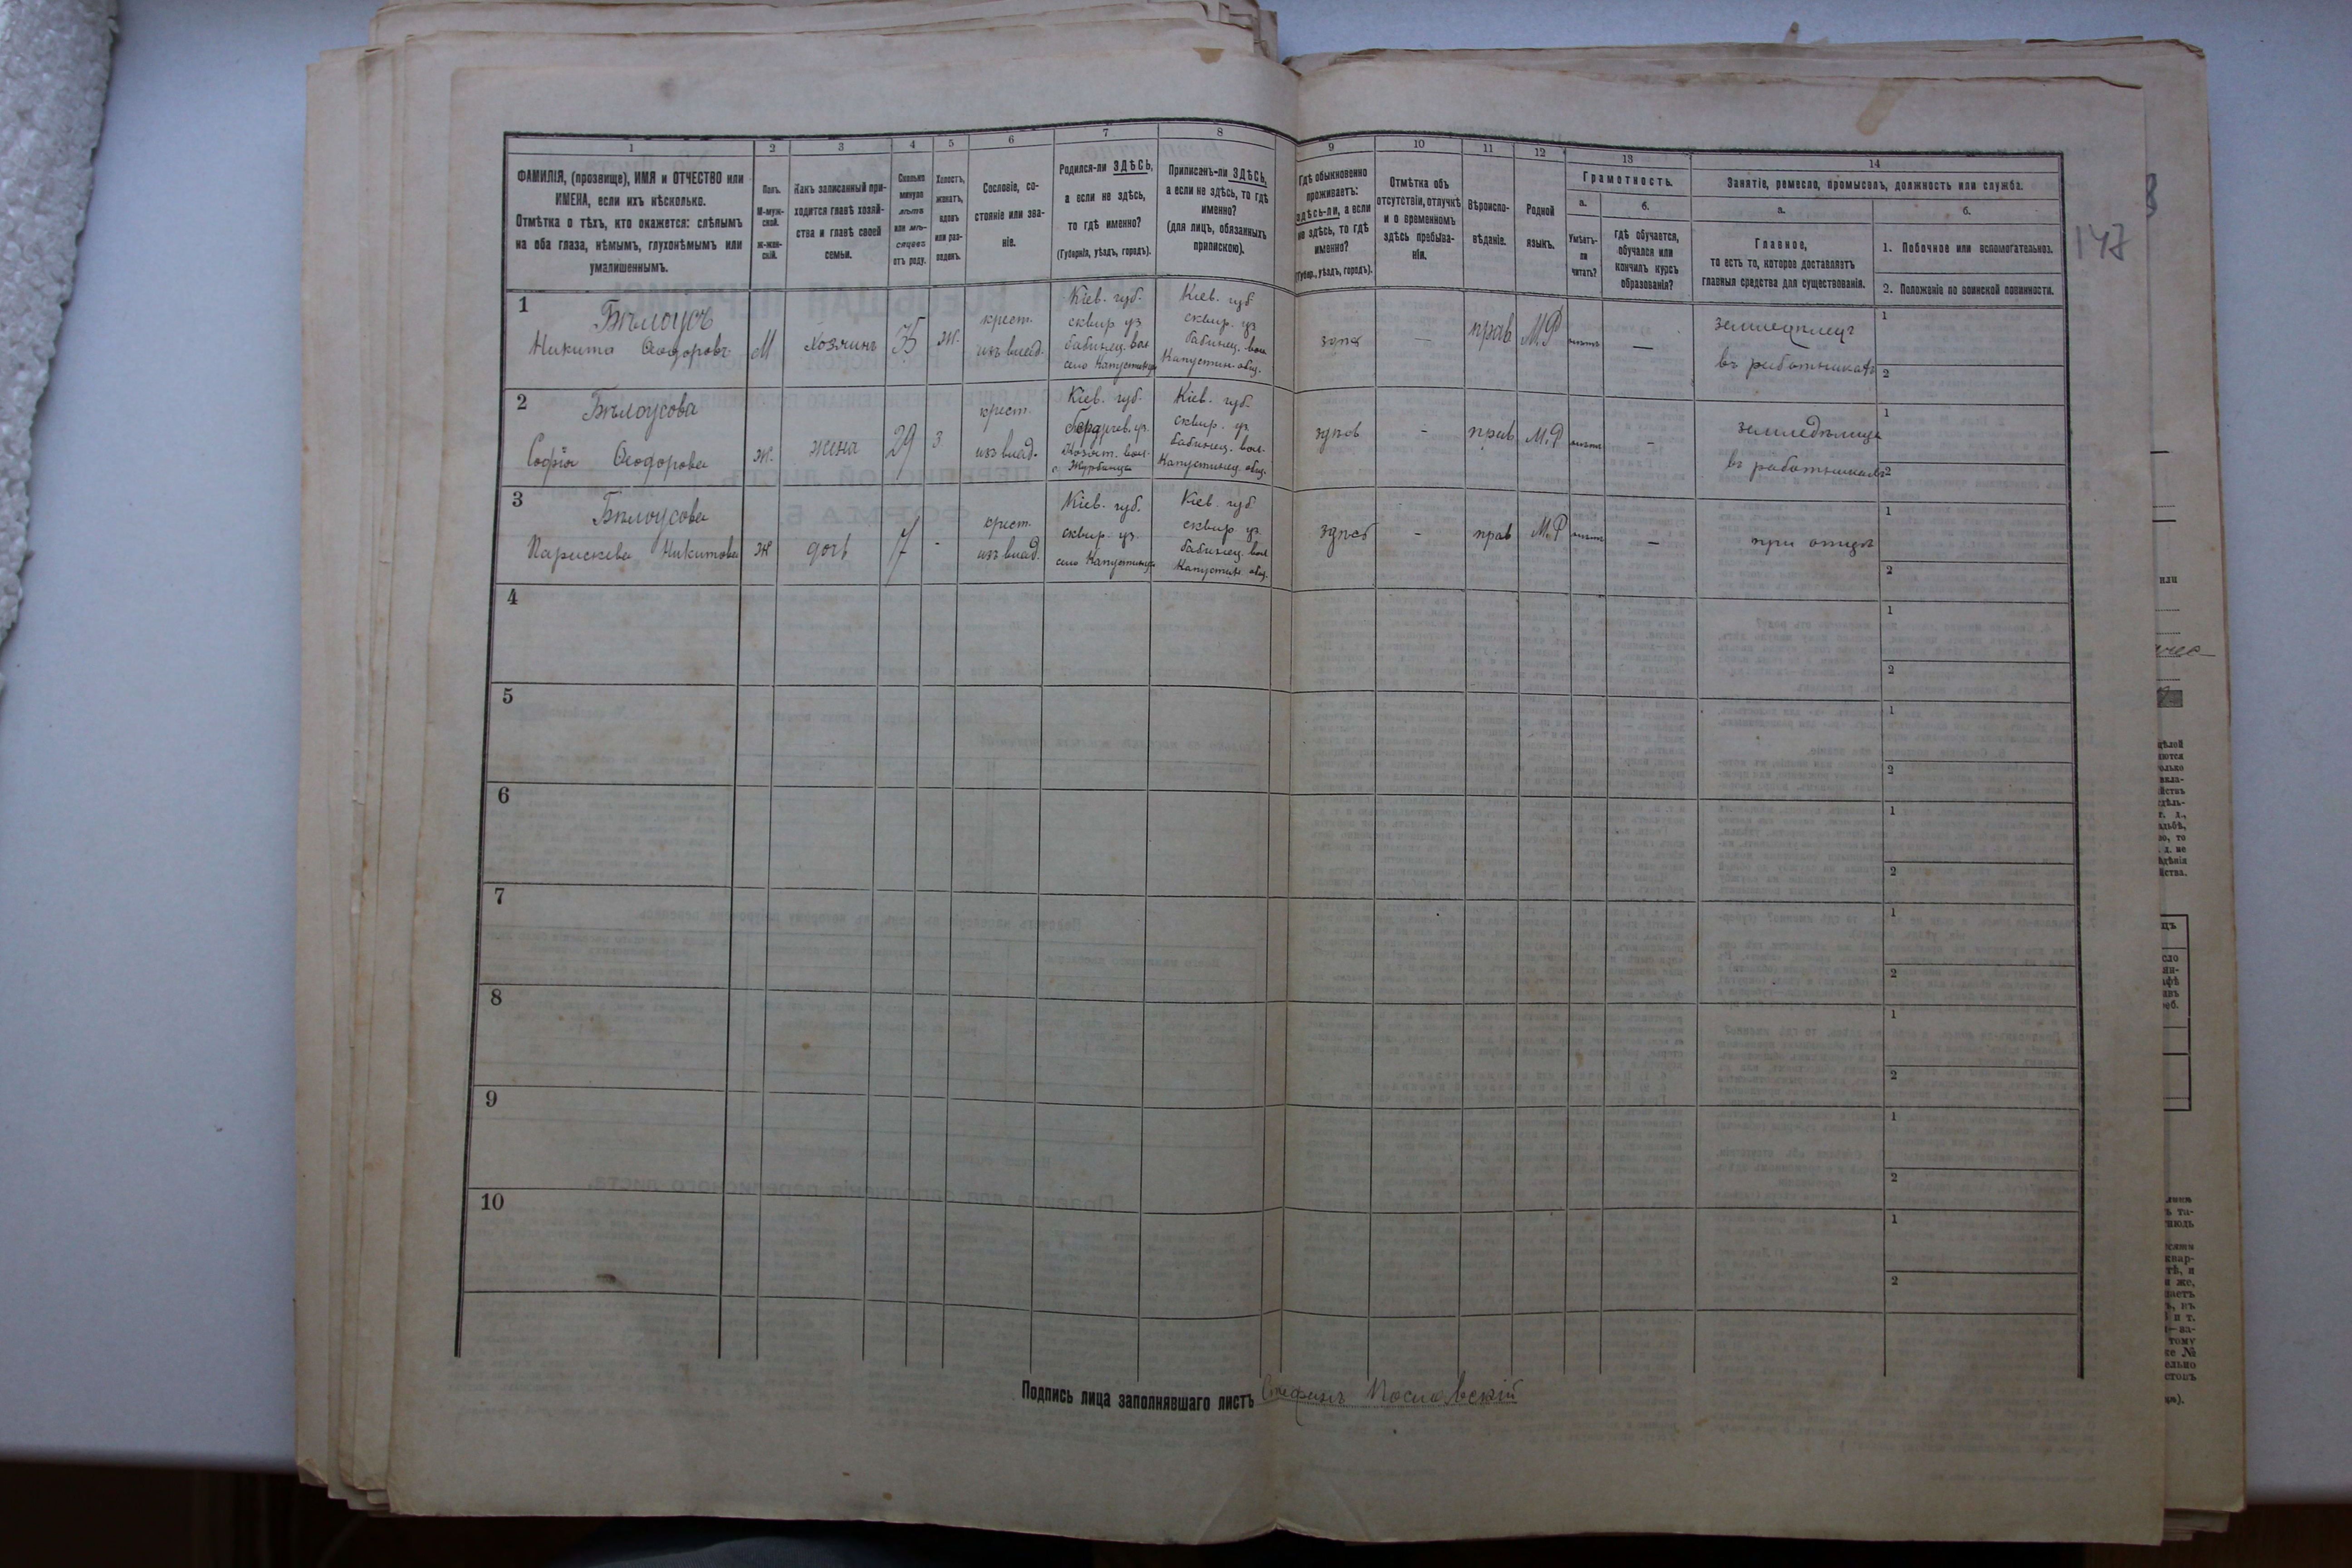 1
2
3
4
5
6
7
8
9
10
11
12
13
14
ФАМИЛІЯ, (прозвище), ИМЯ и ОТЧЕСТВО или
ИМЕНА, если ихъ нѣсколько.
Отмѣтка о тѣхъ, кто окажется: слѣпымъ
на оба глаза, нѣмымъ, глухонѣмымъ или
умалишеннымъ.
Полъ.
М-муж-
ской.
Ж-жен-
скій.
Какъ записанный при-
ходится главѣ хозяй-
ства и главѣ своей
семьи.
Сколько
минуло
лѣтъ
или мѣ-
сяцевъ
отъ роду.
Холостъ,
женатъ,
вдовъ
или раз-
веденъ.
Сословіе, со-
стояніе или зва-
ніе.
Родился-ли ЗДѢСЬ,
а если не здѣсь,
то гдѣ именно?
(Губернія, уѣздъ, городъ).
Приписанъ-ли ЗДѢСЬ,
а если не здѣсь, то гдѣ
именно?
(для лицъ, обязанныхъ
припискою).
Гдѣ обыкновенно
проживаетъ:
здѣсь-ли, а если
не здѣсь, то гдѣ
именно?
(Губер., уѣздъ, городъ).
Отмѣтка объ
отсутствіи, отлучкѣ
и о временномъ
здѣсь пребыва-
ніи.
Вѣроиспо-
вѣданіе.
Родной
языкъ.
Грамотность.
а.
Умѣетъ-
ли
читать?
б.
гдѣ обучается,
обучался или
кончилъ курсъ
образованія?
Занятіе, ремесло, промыселъ, должность или служба.
а.
Главное,
то есть то, которое доставляетъ
главныя средства для существованія.
б.
1. Побочное или вспомогательное.
2. Положеніе по воинской повинности.
147
1
Бѣлоусъ
Никита Ѳеодоровъ
М
хозяинъ
35
ж.
крест.
изъ влад.
Кіев. губ.
сквир уз
бабинец. вол
село Капустинцы
Кіев. губ
сквир. уз
бабинец. вол
Капустин. общ.
здѣсь
—
прав
М.Р
нѣтъ
—
землепашец
въ работникахъ
1
2
2
Бѣлоусова
Софія Ѳеодорова
ж.
жена
29
з
крест.
изъ влад.
Кіев. губ.
бердичев. уз.
вол.
Кіев. губ.
сквир. уз
бабинец. вол.
Капустинец. общ.
здѣсь
-
прав
М.Р
нѣтъ
-
земледѣлица
въ работникахъ
1
2
3
Бѣлоусова
Параскева Никитова
ж
дочь
7
-
крест.
изъ влад.
Кіев. губ.
сквир. уз.
село Капустинцы
Кіев. губ
сквир уз
бабинец. вол
Капустин. общ.
здѣсь
-
прав
М.Р
нѣтъ
—
при отцѣ
1
2
4
1
2
5
1
2
6
1
2
7
1
2
8
1
2
9
1
2
10
1
2
Подпись лица заполнявшаго листъ Стефанъ